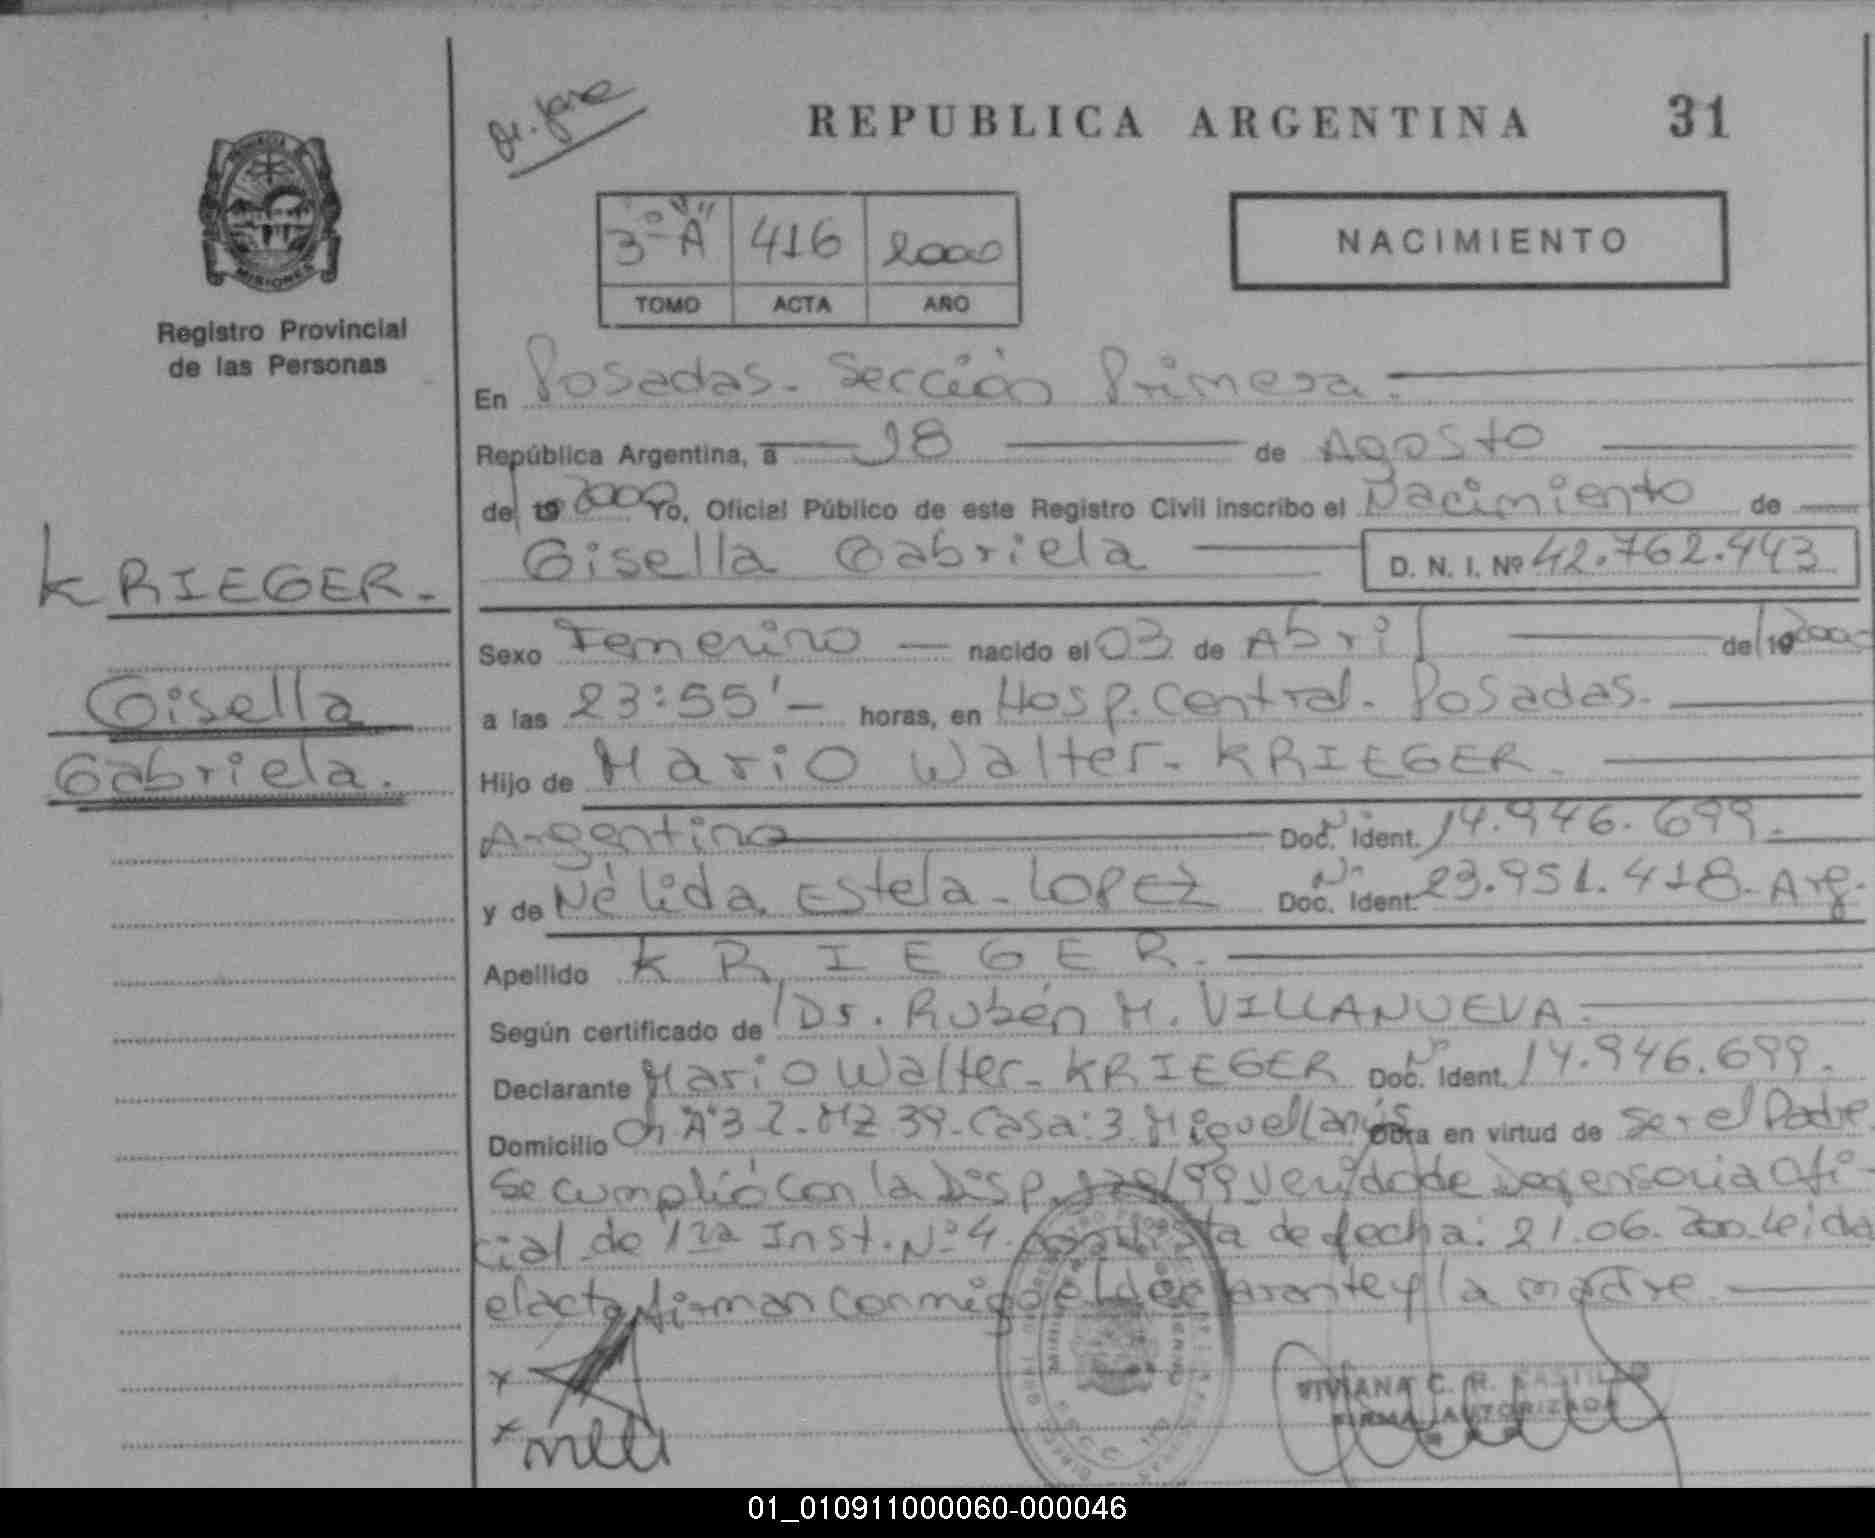 REPUBLICA ARGENTINA 31
PROVINCIA
MISIONES
Registro Provincial
de las Personas
3º "A" 416 2000
TOMO ACTA AÑO
NACIMIENTO
En Posadas - Sección Primera.
República Argentina, a 18 de Agosto
de 19 2000 Yo, Oficial Público de este Registro Civil inscribo el Nacimiento de
Gisella Gabriela D. N. I. Nº 42.762.443
KRIEGER.
Gisella
Gabriela.
Sexo Femenino nacido el 03 de Abril de 19 2000
a las 23:55' horas, en Hosp. Central. Posadas.
Hijo de Mario Walter - KRIEGER.
Argentino Doc. Ident. Nº 14.946.699.
y de Nélida Estela - LOPEZ Doc. Ident. Nº 23.951.418 - Arg.
Apellido KRIEGER.
Según certificado de Dr. Rubén M. VILLANUEVA.
Declarante Mario Walter - KRIEGER Doc. Ident. Nº 14.946.699.
Domicilio Ch "A" 32 - MZ 39 - Casa: 3. Miguel Lanús Obra en virtud de ser el Padre
Se cumplió con la Disp. /99 de Defensoria Ofi-
cial de 1ra Inst. Nº 4. de fecha: 21.06.2000. Leida
el acta firman conmigo el declarante y la madre.
VIVIANA C. R. CASTILLO
FIRMA AUTORIZADA
01_010911000060-000046